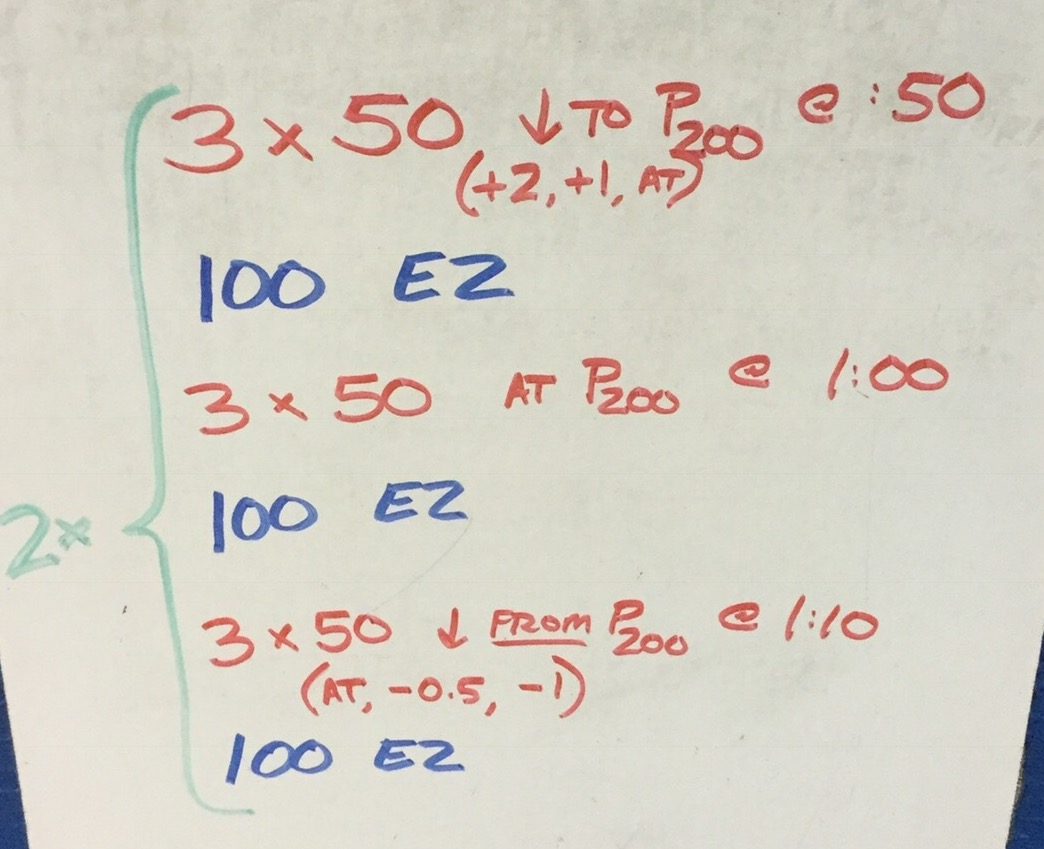 3 x 50 ↓ TO P200 @ :50
(+2, +1, AT)
100 EZ
3 x 50 AT P200 @ 1:00
2x
100 EZ
3 x 50 ↓ FROM P200 @ 1:10
(AT, -0.5, -1)
100 EZ